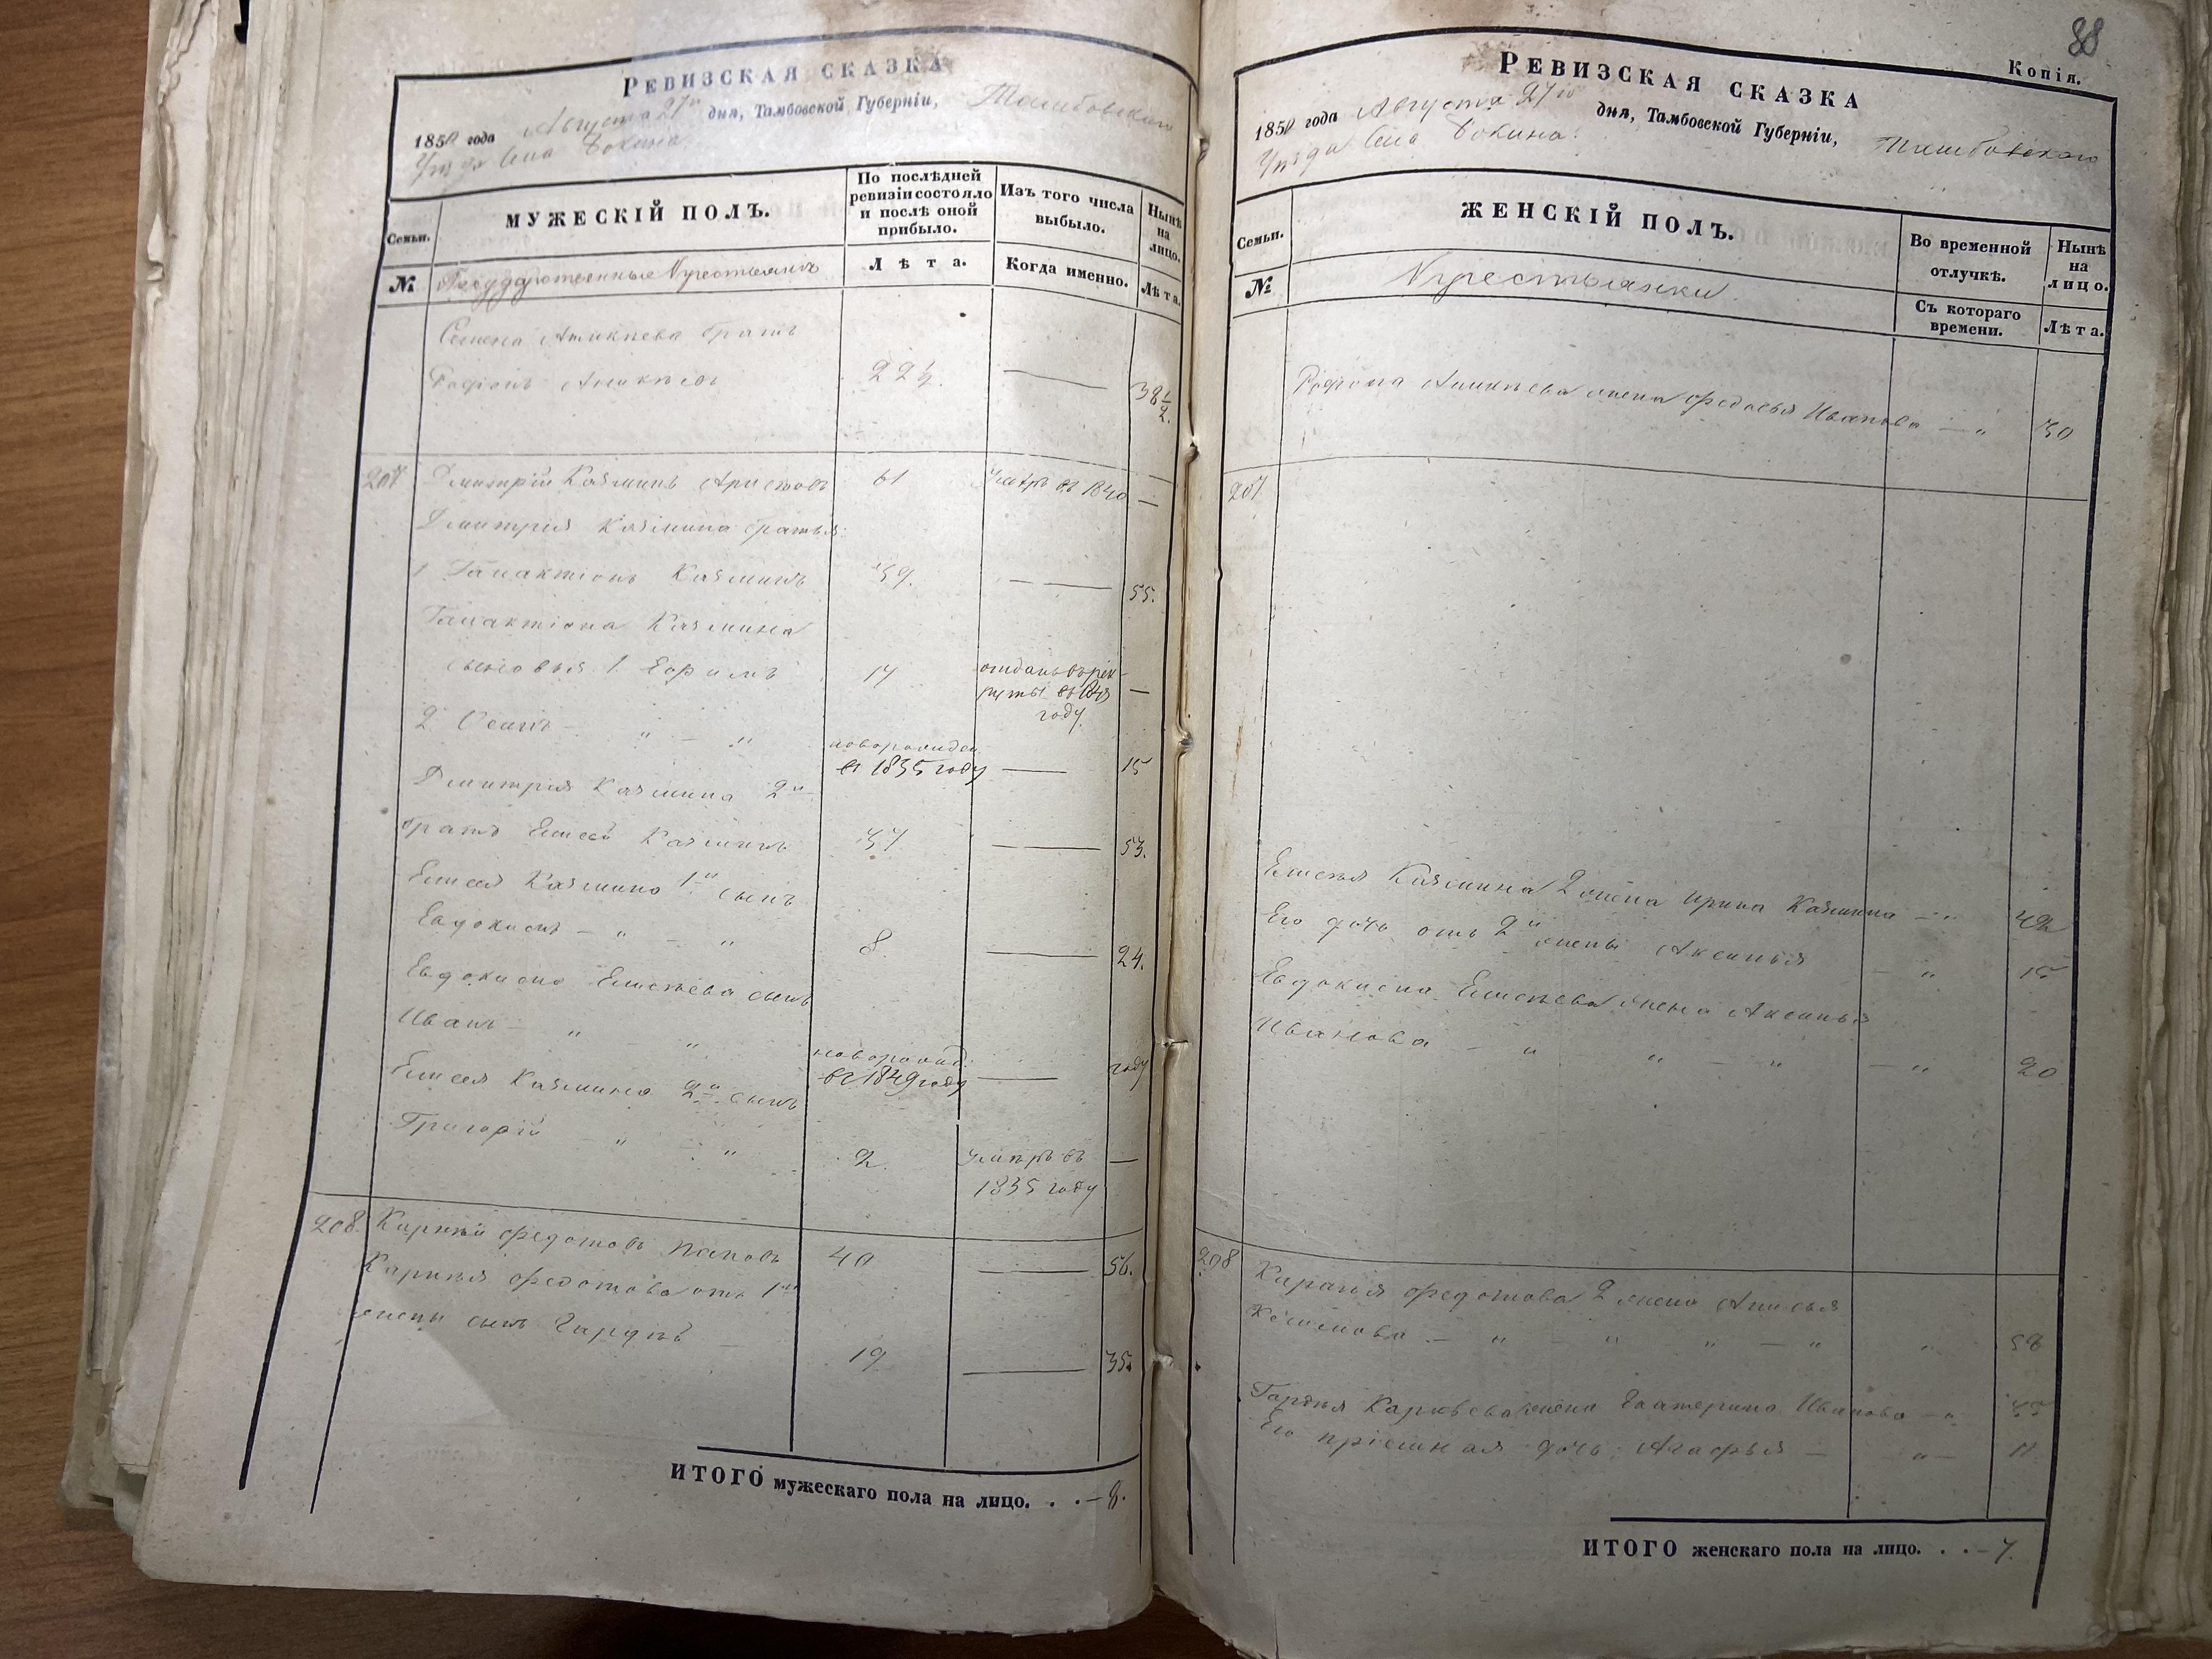 РЕВИЗСКАЯ СКАЗКА
1850 года Августа 27го дня, Тамбовской Губерніи, Тамбовскаго
Уѣзда Села
Семьи.
МУЖЕСКІЙ ПОЛЪ.
По послѣдней ревизіи состояло и послѣ оной прибыло.
Изъ того числа выбыло.
Нынѣ на лицо.
№
Государственные Крестьяне
Лѣта.
Когда именно.
Лѣта.
Семена Аникѣева братъ
Родіонъ Аникѣевъ 22½. — 38½.
207 Дмитрій Казминъ Аристовъ 61 Умеръ въ 1840 —
Дмитрія Казмина братья:
1 Галактіонъ Казминъ 39. — 55.
Галактіона Казмина
сыновья 1. Ефимъ 14 отданъ въ рек-
руты въ —
году.
2 Осипъ — " — " новорожден
въ 1835 году — 15
Дмитрія Казмина 2й
братъ Елисей Казминъ 37. — 53.
Елисея Казмина 1й сынъ
Евдокимъ — " — " 8. — 24.
Евдокима Елисѣева сынъ
Иванъ — " " новорожд.
въ 1849 году — году
Елисея Казмина 2й сынъ
Григорій — " — " 2. Умеръ въ —
1835 году
208. Карпѣй Федотовъ Поповъ 40 — 56.
Карпѣя Федотова отъ 1й
жены сынъ Гардѣй — 19 — 35.
ИТОГО мужескаго пола на лицо. . . — 8.
88
Копія.
РЕВИЗСКАЯ СКАЗКА
1850 года Августа 27го дня, Тамбовской Губерніи, Тамбовскаго
Уѣзда Села
Семьи.
ЖЕНСКІЙ ПОЛЪ.
Во временной отлучкѣ.
Нынѣ на лицо.
№
Крестьянки
Съ котораго времени.
Лѣта.
Родіона Аникѣева жена Федосья Иванова — " 30
207.
Елисея Казмина 2 жена Ирина Казмина — " 42
Его дочь отъ 2й жены Аксинья — " 15
Евдокима Елисѣева жена Аксинья
Иванова — " " — " — " 20
208 Карпѣя Федотова 2 жена Анисья
— " — " " — " " 58
Гардѣя Карпѣева жена Екатерина Иванова — "
Его пріемная дочь Агафья — " — 11.
ИТОГО женскаго пола на лицо. . . — 7.